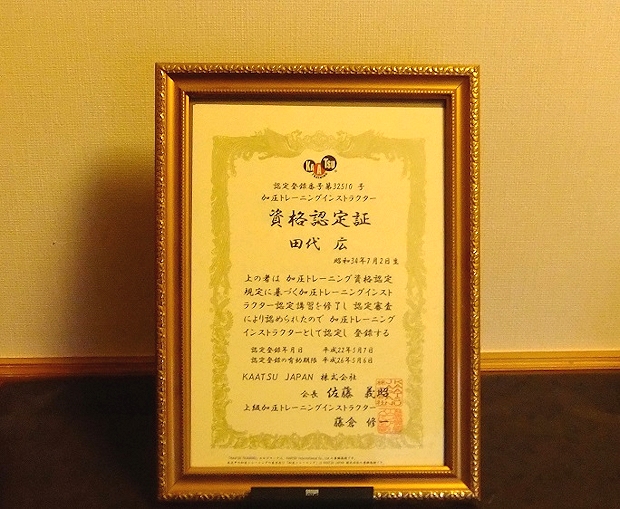 KAATSU
認定登録番号第32510 号
加圧トレーニングインストラクター
資格認定証
田代 広
昭和34年7月2日生
上の者は 加圧トレーニング資格認定
規定に基づく加圧トレーニングインスト
ラクター認定講習を修了し 認定審査
により認められたので 加圧トレーニング
インストラクターとして認定し 登録する
認定登録年月日 平成22年5月7日
認定登録の有効期限 平成26年5月6日
KAATSU JAPAN 株式会社
会長 佐藤 義昭
上級加圧トレーニングインストラクター
藤倉 修一